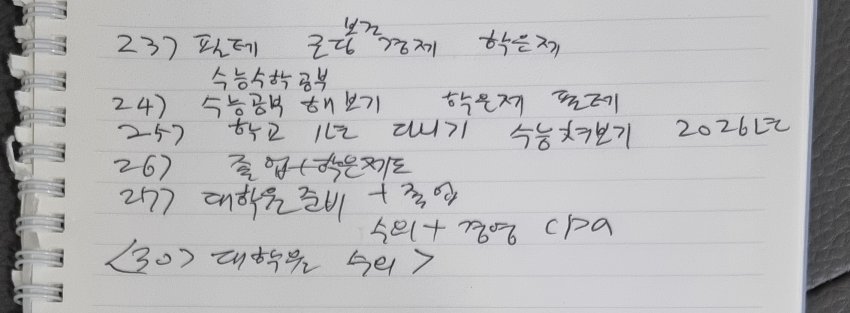 보건
23) 필테 국립 경제 학은제
수능수학공부
24) 수능공부 해보기 학은제 필테
25) 학교 1년 다니기 수능쳐보기 2026년
26) 졸업+학은제도
27) 대학원준비 + 졸업
수의+경영 cpa
<30> 대학원 수의>